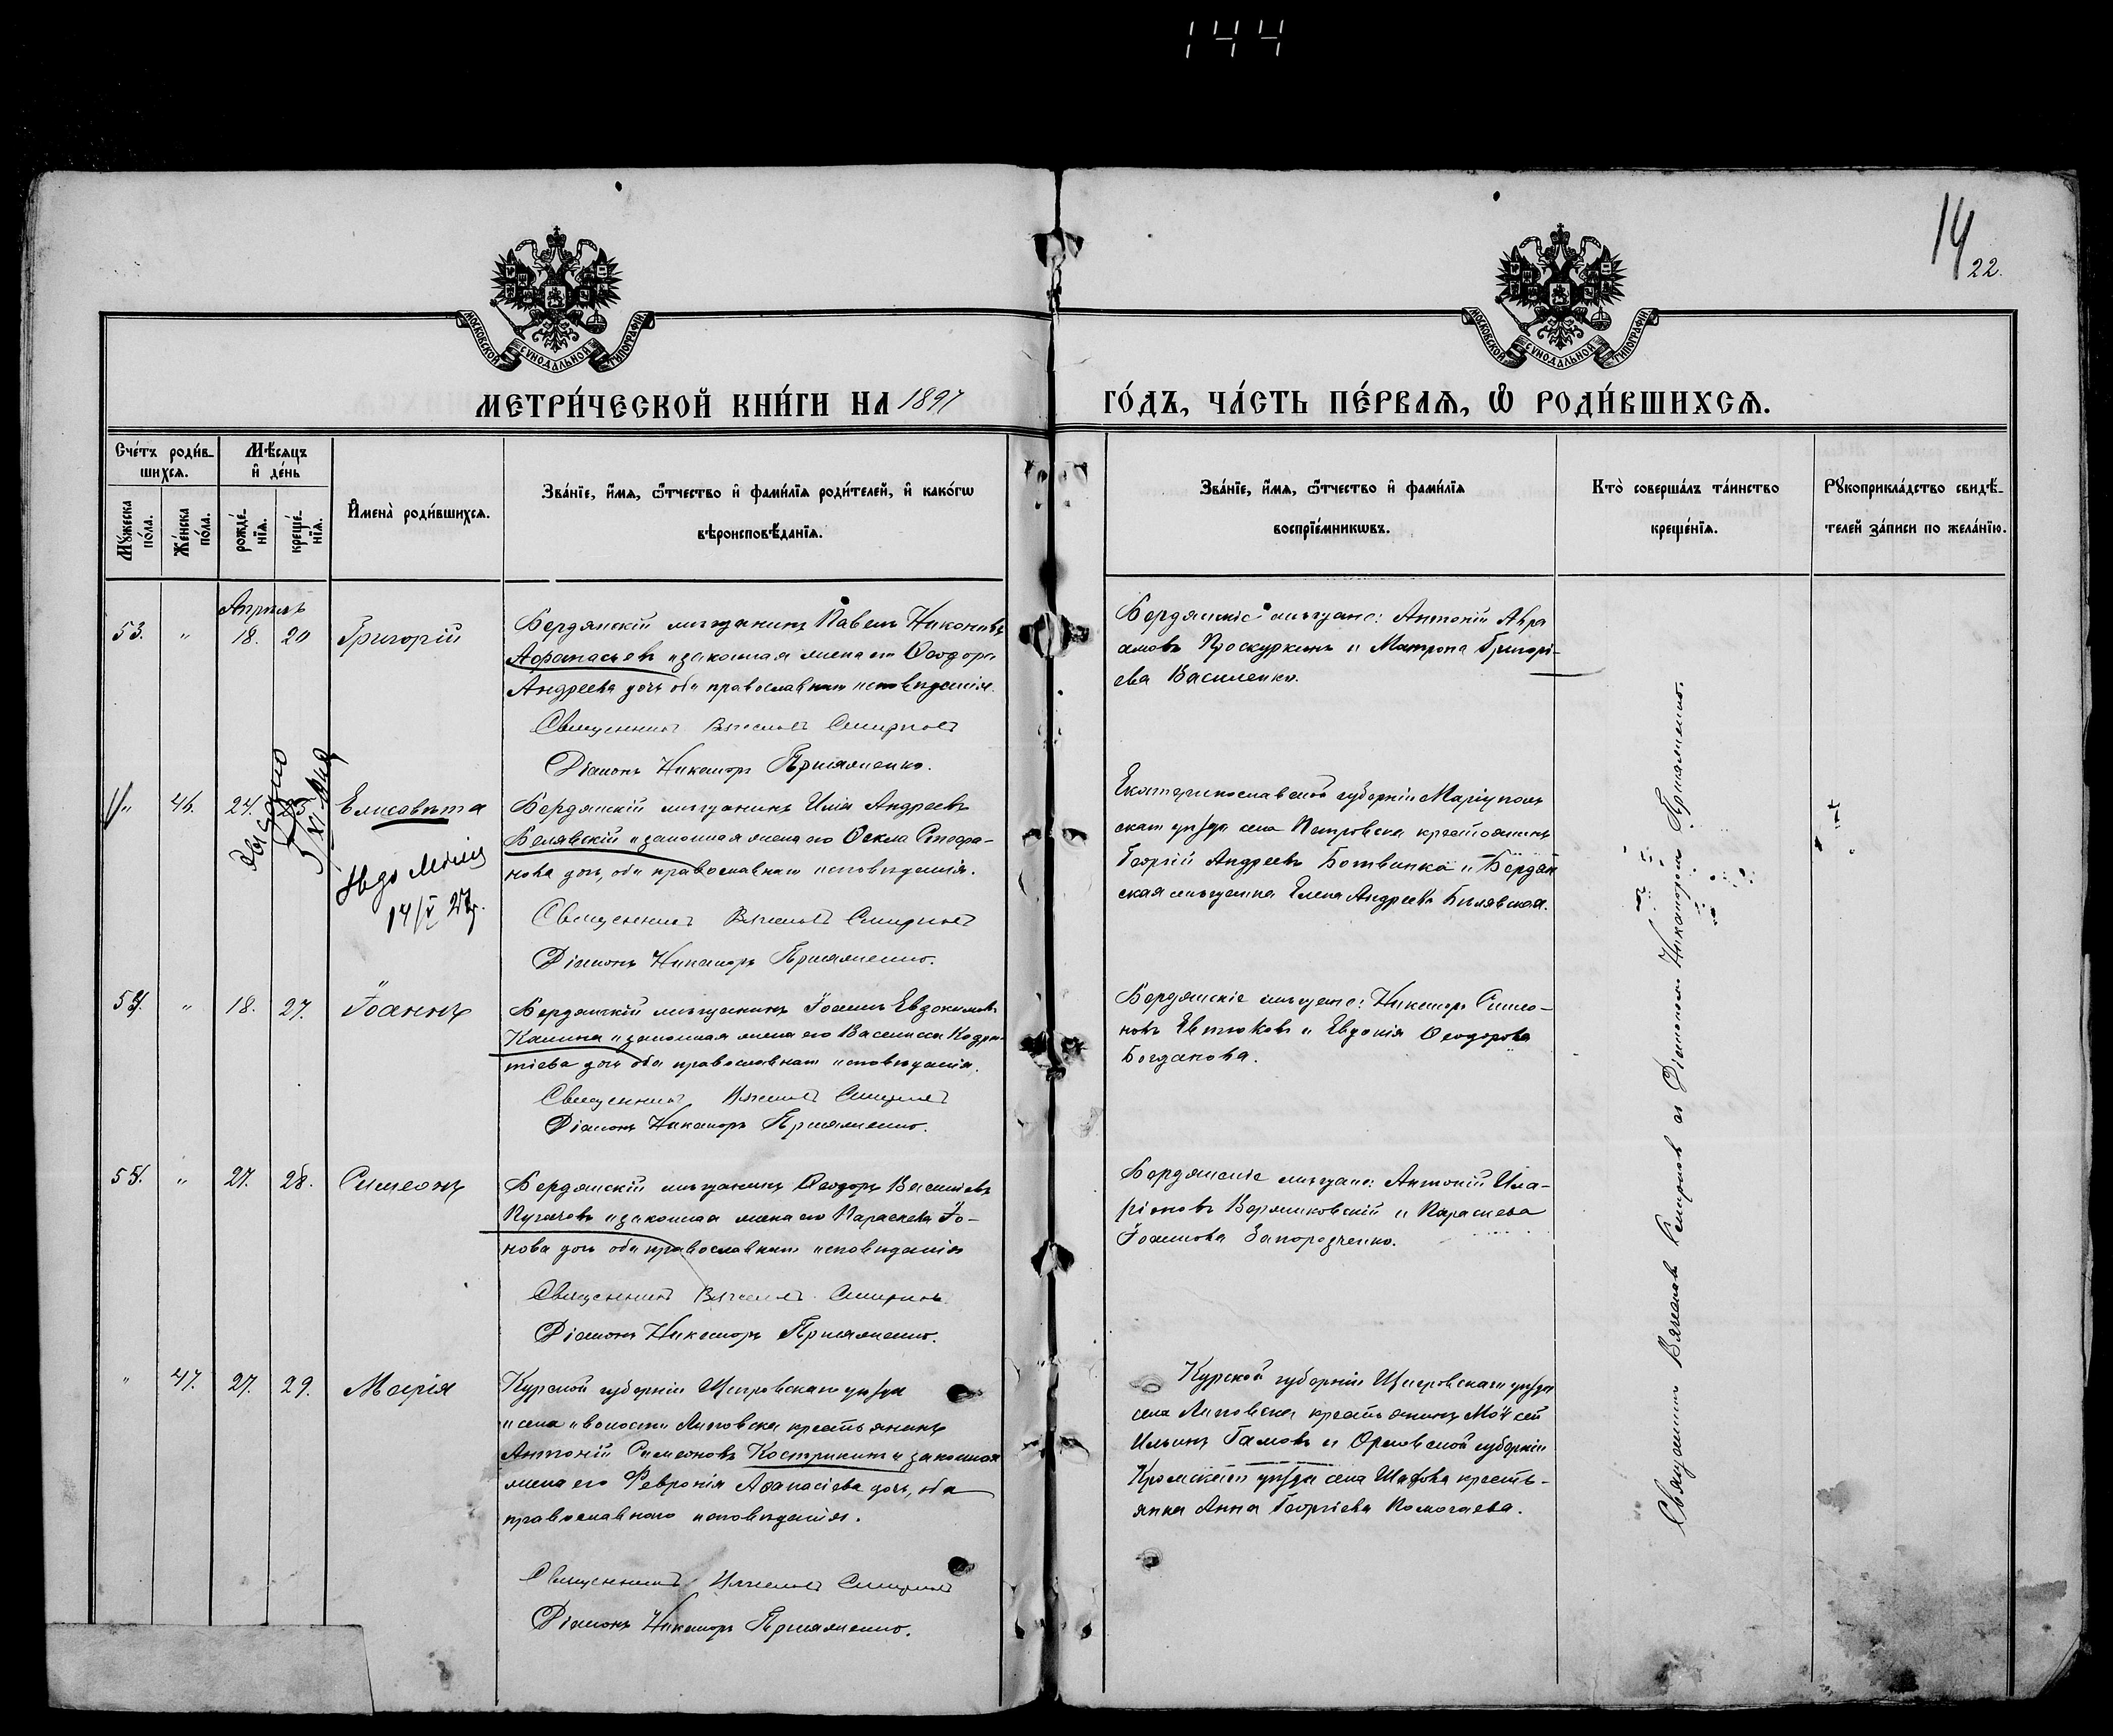 144
14
22.
МОСКОВСКОЙ СѴНОДАЛЬНОЙ ТИПОГРАФІИ
МОСКОВСКОЙ СѴНОДАЛЬНОЙ ТИПОГРАФІИ
МЕТРИ́ЧЕСКОЙ КНИ́ГИ НА 1897
ГО́ДЪ, ЧА́СТЬ ПЕ́РВАѦ, Ѡ РОДИ́ВШИХСѦ.
Сче́тъ роди́в-
шихсѧ.
Мѣ́сѧцъ
и҆ де́нь
Мꙋ́жеска
по́ла.
Же́нска
по́ла.
рожде́-
нїѧ.
креще́-
нїѧ.
И҆мена̀ роди́вшихсѧ.
Зва́нїе, и҆́мѧ, ѻ҆́тчество и҆ фами́лїѧ роди́телей, и҆ како́гѡ
вѣроисповѣ́данїѧ.
Зва́нїе, и҆́мѧ, ѻ҆́тчество и҆ фами́лїѧ
воспрїе́мникѡвъ.
Кто̀ соверша́лъ та́инство
креще́нїѧ.
Рꙋкоприкла́дство свидѣ́-
телей за́писи по жела́нїю.
Апрѣль
53. " 18. 20 Григорій
Бердянскій мѣщанинъ Павелъ Никоновъ
Афанасьевъ и законная жена его Ѳеодора
Андреева дочь оба православнаго исповѣданія.
Священникъ Вячеславъ Смирновъ
Діаконъ Никаноръ Прижиленко.
Бердянскіе мѣщане: Антоній Авра
амовъ Проскуркинъ и Матрона Григорі-
ева Василенко.
" 46. 24. Елисавета
14/V 27г.
Бердянскій мѣщанинъ Илія Андреевъ
Белявскій и законная жена его Ѳекла Стефа-
нова дочь, оба православнаго исповѣданія.
Священникъ Вячеславъ Смирновъ
Діаконъ Никаноръ Прижиленко.
Екатеринославской губерніи Маріуполь
скаго уѣзда села Петровска крестьянинъ
Георгій Андреевъ Ботвинка и Бердян
ская мѣщанка Елена Андреева Бѣлявская.
54. " 18. 27. Іоаннъ
Бердянскій мѣщанинъ Іоаннъ Евдокимовъ
Калина и законная жена его Василиса Кодра-
тіева дочь оба православнаго исповѣданія.
Священникъ Вячеславъ Смирновъ
Діаконъ Никаноръ Прижиленко.
Бердянскіе мѣщане: Никаноръ Симео-
новъ Евтюковъ и Евдокія Ѳеодорова
Богданова.
55. " 27. 28. Симеонъ
Бердянскій мѣщанинъ Ѳеодоръ Василіевъ
Пугачовъ и законная жена его Параскева Іо-
нова дочь оба православнаго исповѣданія
Священникъ Вячеславъ Смирновъ
Діаконъ Никаноръ Прижиленко.
Бердянскіе мѣщане: Антоній Ила-
ріоновъ Верлиновскій и Параскева
Іоаннова Запорозченко.
" 47. 27. 29. Марія
Курской губерніи Щигровскаго уѣзда
и села и волости Липовска крестьянинъ
Антоній Симеоновъ Кострикинъ и законная
жена его Февронія Аѳанасіева дочь, оба
православнаго исповѣданія.
Священникъ Вячеславъ Смирновъ
Діаконъ Никаноръ Прижиленко.
Курской губерніи Щигровскаго уѣзда
села Липовска крестьянинъ Моѵсей
Ильинъ Гамовъ и Орловской губерніи
Кромскаго уѣзда села Шахова кресть-
янка Анна Георгіева Помогаева.
Священникъ Вячеславъ Смирновъ съ Діакономъ Никаноромъ Прижиленко.